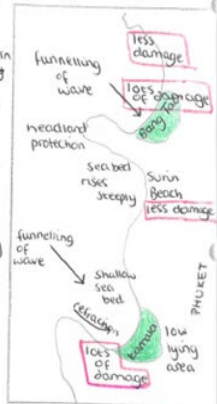 in
less
damage
funnelling
of
wave
lots
of damage
Bang Tao
headland
protection
sea bed
rises
steeply
Surin
Beach
less damage
funnelling
of
wave
shallow
sea
bed
refraction
PHUKET
Kamala
low
lying
area
lots
of
damage